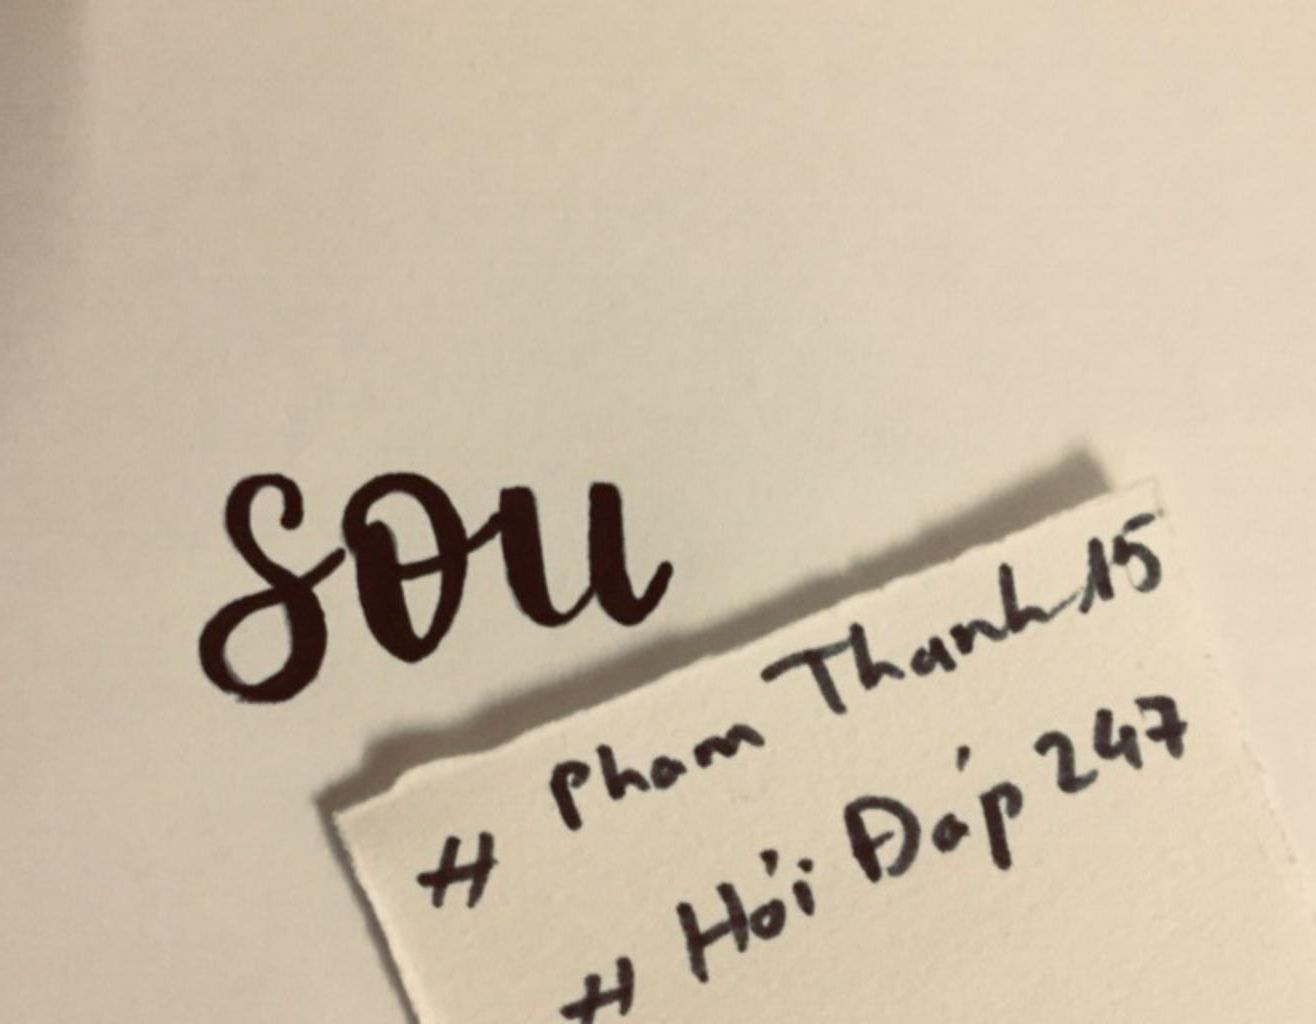 sou
# Pham Thanh 15
# Hỏi Đáp 247